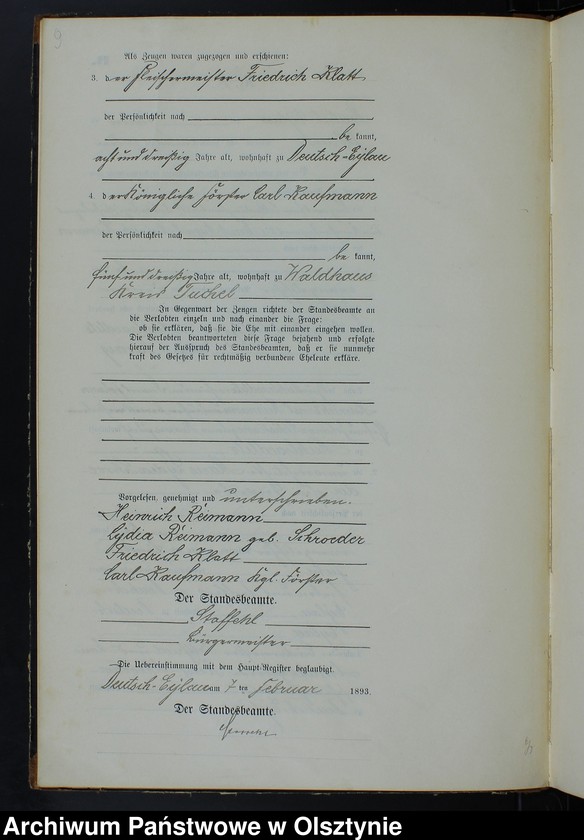 9
Als Zeugen waren zugezogen und erschienen:
3. der Fleischermeister Friedrich Klatt
der Persönlichkeit nach
be kannt,
acht und dreißig Jahre alt, wohnhaft zu Deutsch-Eylau
4. der Königliche Förster Carl Kaufmann
der Persönlichkeit nach
be kannt,
fünf und dreißig Jahre alt, wohnhaft zu Waldhaus
Kreis Tuchel
In Gegenwart der Zeugen richtete der Standesbeamte an
die Verlobten einzeln und nach einander die Frage:
ob sie erklären, daß sie die Ehe mit einander eingehen wollen.
Die Verlobten beantworteten diese Frage bejahend und erfolgte
hierauf der Ausspruch des Standesbeamten, daß er sie nunmehr
kraft des Gesetzes für rechtmäßig verbundene Eheleute erkläre.
Vorgelesen, genehmigt und unterschrieben.
Heinrich Reimann
Lydia Reimann geb. Schroeder
Friedrich Klatt
Carl Kaufmann Kgl. Förster
Der Standesbeamte.
Staffehl
Bürgermeister
Die Uebereinstimmung mit dem Haupt-Register beglaubigt.
Deutsch-Eylau am 7 ten Februar 1893.
Der Standesbeamte.
Archiwum Państwowe w Olsztynie